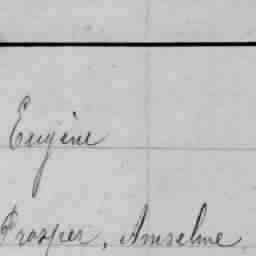 Eugène
Prosper, Anselme